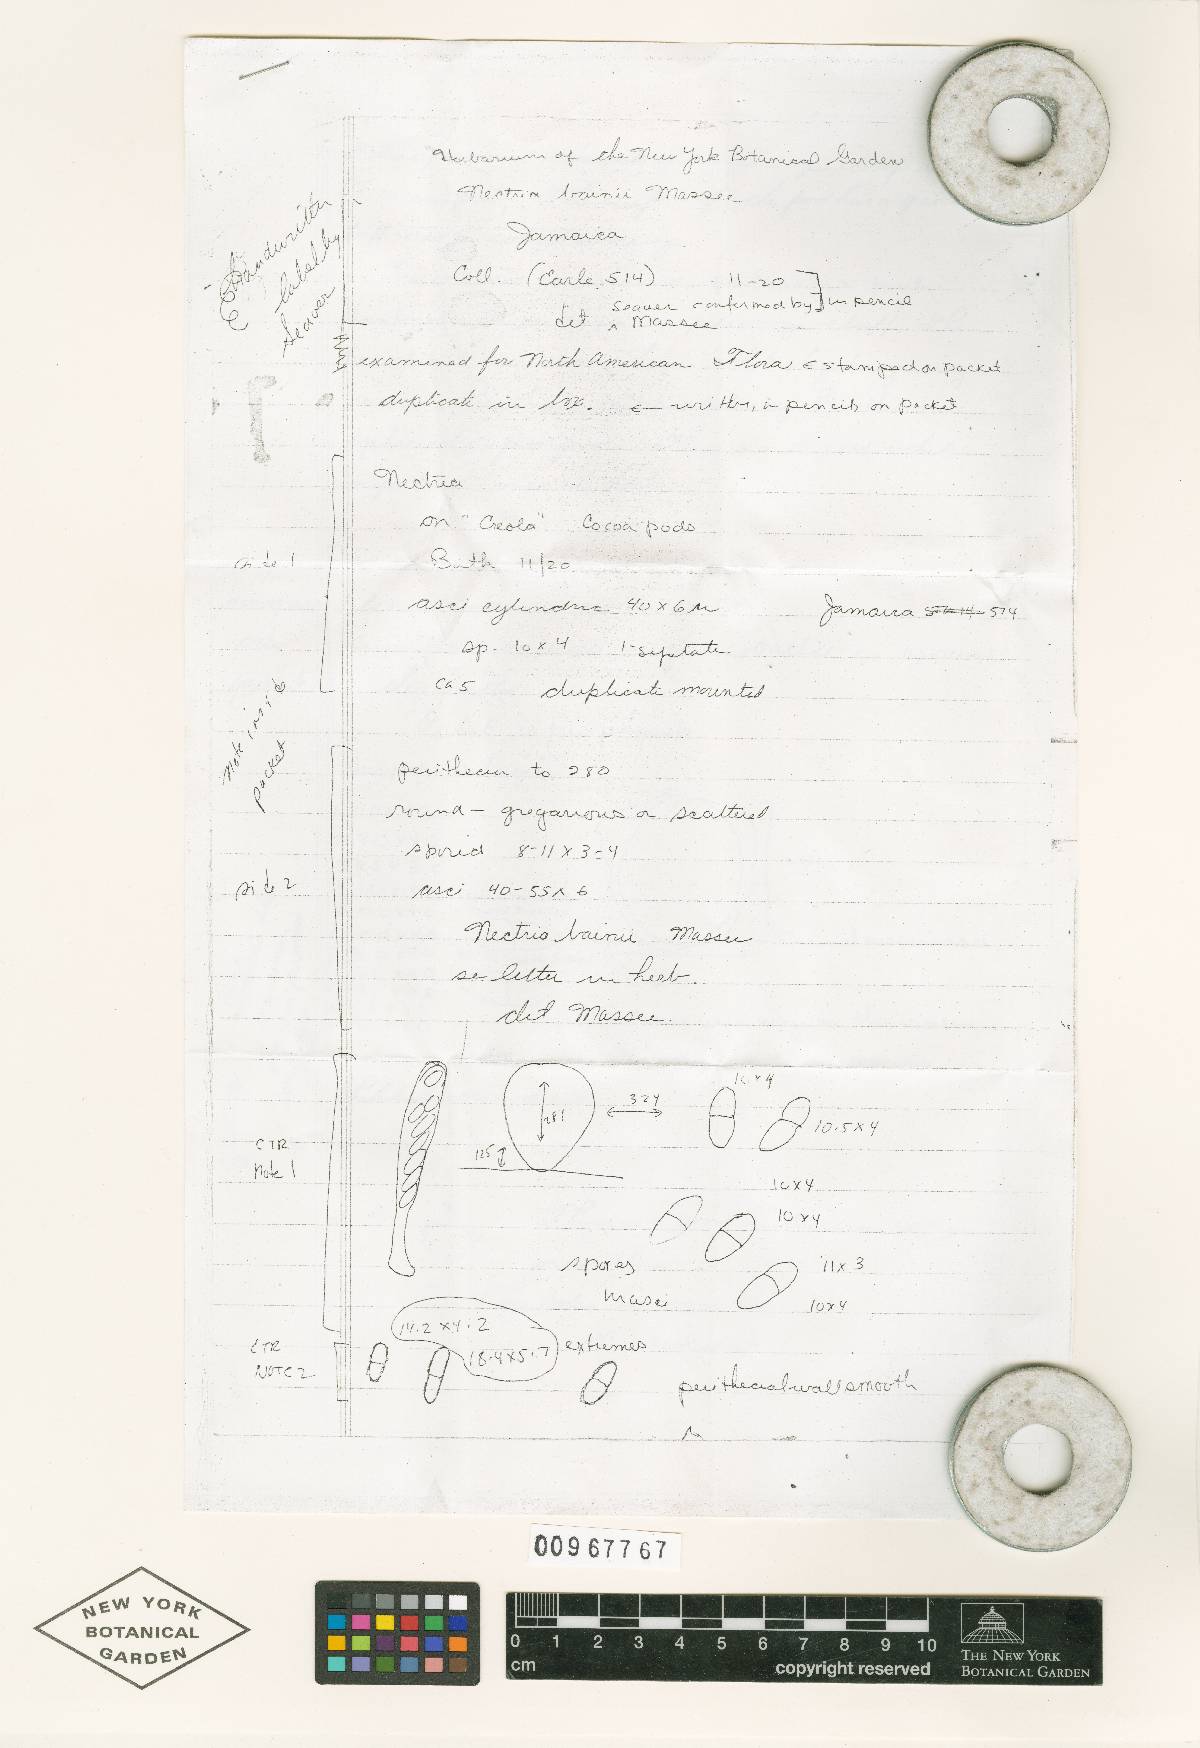 Herbarium of the New York Botanical Garden
Nectria bainii Massee
Jamaica
Coll. (Earle 514) 11-20
Seaver confirmed by in pencil
det ^ Massee
Handwritten
label by
Seaver
examined for North American Flora ← stamped on packet
duplicate in box. ← written in pencil on packet
Nectria
on "Creola" Cocoa pods
side 1
Bath 11/20
asci cylindric 40 x 6 µ Jamaica 514
sp. 10 x 4 1-septate
ca 5 duplicate mounted
Note inside
packet
perithecia to 280
round - gregarious or scattered
sporid 8-11 x 3-4
side 2
asci 40-55 x 6
Nectria bainii Massee
see letter in herb.
det Massee
10 x 4
324
281
10.5 x 4
125
CTR
Note 1
10 x 4
10 x 4
spores
11 x 3
in asci
10 x 4
14.2 x 4.2
CTR
NOTE 2
18.4 x 5.7 extremes
perithecial wall smooth
00967767
NEW YORK
BOTANICAL
GARDEN
0 1 2 3 4 5 6 7 8 9 10
cm
copyright reserved
THE NEW YORK
BOTANICAL GARDEN